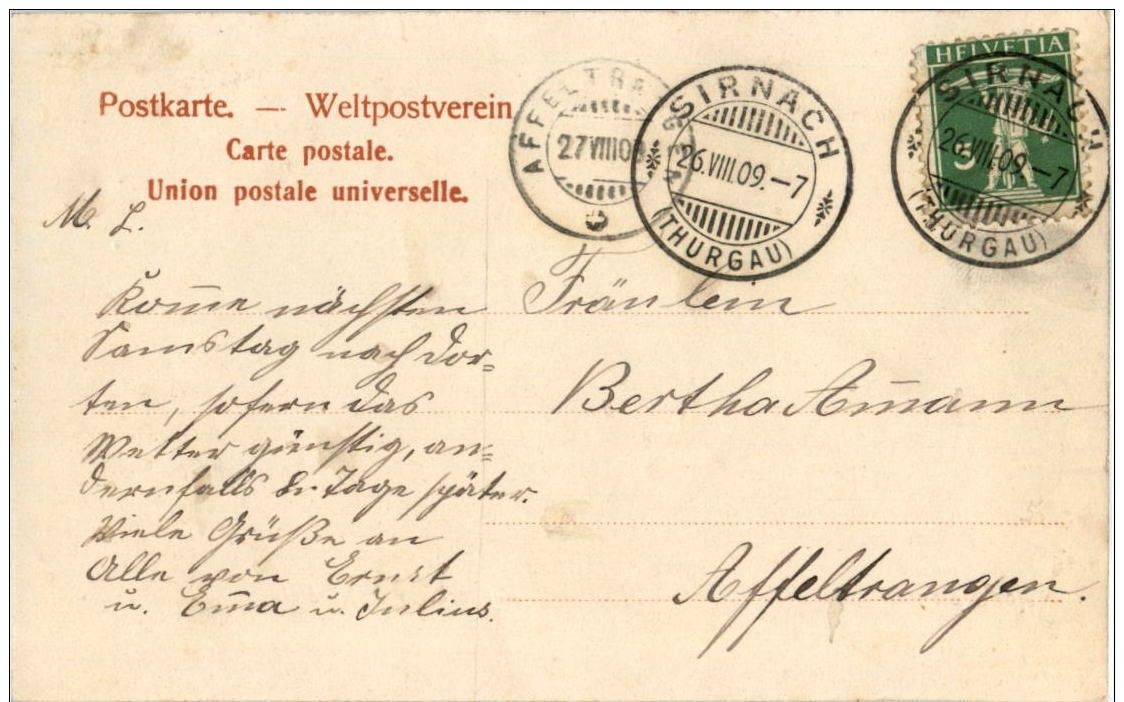 Postkarte. — Weltpostverein
Carte postale.
Union postale universelle.
AFFELTRANGEN
27 VIII 09
SIRNACH
26.VIII.09.–7
(THURGAU)
HELVETIA
5
SIRNACH
26.VIII.09.–7
(THURGAU)
M. L.
Kom̅e nächsten
Samstag nach dor=
ten, sofern das
Wetter günstig, an=
dernfalls Tage später.
Viele Grüße an
Alle von Ernst
u. Em̅a u. Julius.
Fräulein
Bertha Am̅ann
Affeltrangen.